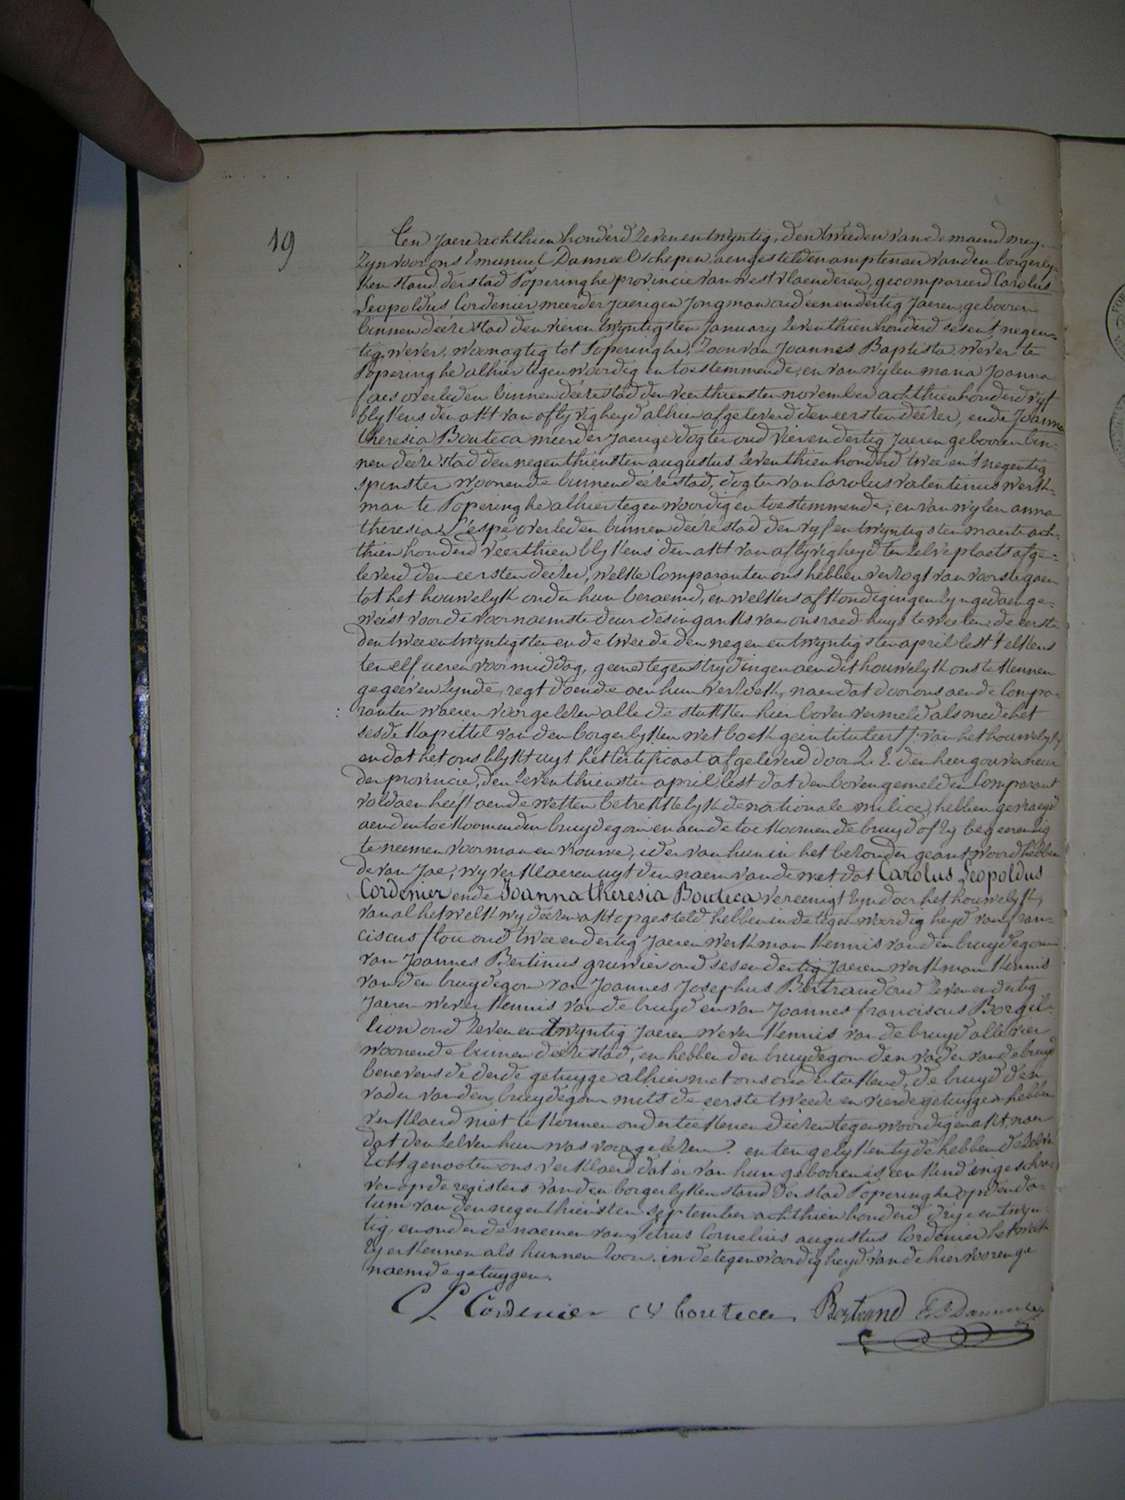 19
Een Jaere achthien honderd Zeven en twyntig, den tweeden van de maend mey,
Zyn voor ons Emanuel Danneel Schepen, aengestelden amptenaer van den borgerly-
ken stand der stad Poperinghe provincie van west vlaenderen, gecompareerd Carolus
Leopoldus Cordenier, meerder Jaerigen Jongman oud een en dertig Jaeren, gebooren
binnen deeze stad den vier en twyntigsten January Zeventhien honderd ses en t'negen-
tig, wever, woonagtig tot Poperinghe, Zoon van Joannes Baptista wever te
Poperinghe alhier tegenwoordig en toestemmende, en van wylen maria Joanna
overleden binnen deeze stad den veerthiensten november achthien honderd vyf
blykens den akt van aflyvigheyd alhier afgeleverd den eersten dezer, ende Joanna
theresia Bouteca meerder Jaerige dogter oud vier en dertig Jaeren gebooren bin-
nen deeze stad den negenthiensten augustus Zeventhien honderd twee en t'negentig
spinster, woonende binnen deeze stad, dogter van Carolus valentinus werk-
man te Poperinghe alhier tegenwoordig en toestemmende; en van wylen anna
theresia L'espé overleden binnen deeze stad den vyf en twyntigsten maerte ach-
thien honderd veerthien blykens den akt van aflyvigheyd ten zelve plaets afge-
leverd den eersten dezer, welke Comparanten ons hebben verzogt van voorts te gaen
tot het houwelyk onder hun beraemd, en welkers afkondigingen zyn gedaen ge-
weest voor de voornaemste deur des ingangks van ons raedhuys te weten: de eerste
den twee en twyntigsten en de tweede den negen en twyntigsten april lest telkens
ten elf ueren voormiddag, geene tegenstrydingen aen dit houwelyk ons te kennen
gegeeven zynde, regt doende aen hun verzoek, naer dat door ons aen de Compa-
ranten waeren voorgelezen alle de stukken hier boven vermeld als mede het
sesde Kapittel van den borgerlyken wetboek geintituleert, van het houwelyk
en dat het ons blykt uyt het Certificaat afgeleverd door Z. E. den heer gouverneur
der provincie, den Zeventhiensten april lest dat den bovengemelden Comparant
voldaen heeft aen de wetten betrekkelyk de nationale milice, hebben gevraegd
aen den toekoomenden bruydegom en aen de toekoomende bruyd of zy begeeren zig
te neemen voor man en vrouwe, ider van hun in het bezonder geantwoord hebben-
de van Jae; wy verklaeren uyt den naem van de wet dat Carolus Leopoldus
Cordenier ende Joanna theresia Bouteca vereenigt zyn door het houwelyk,
van al het welk wy dezen akt opgesteld hebben in de tegenwoordigheyd van fran-
ciscus oud twee en dertig Jaeren werkman kennis van den bruydegom
van Joannes Bertinus gruwier oud ses en dertig Jaeren werkman kennis
van den bruydegom van Joannes Josephus Bertrand oud Zeven en dertig
Jaeren wever kennis van de bruyd en van Joannes franciscus Borgil-
lion oud Zeven en twyntig Jaeren wever kennis van de bruyd alle vier
woonende binnen deeze stad, en hebben den bruydegom den vader van de bruyd
benevens de derde getuyge alhier met ons onderteekend, de bruyd den
vader van den bruydegom mits de eerste tweede en vierde getuygen hebben
verklaerd niet te konnen onderteekenen deezen tegenwoordigen akt, naer
dat den zelven hun was voorgelezen. en ten gelyken tyde hebben de Zelve
Echtgenooten ons verklaerd dat er van hun gebooren is een kind ingeschre-
ven op de registers van den borgerlyken stand der stad Poperinghe op den da-
tum van den negenthiensten september achthien honderd drye en twyn-
tig, en onder de naemen van Petrus Cornelius augustus Cordenier het welk
Zy erkennen als hunnen Zoon. in de tegenwoordigheyd van de hier vooren ge-
naemde getuygen.
C L Cordenier CV bouteca Bertrand